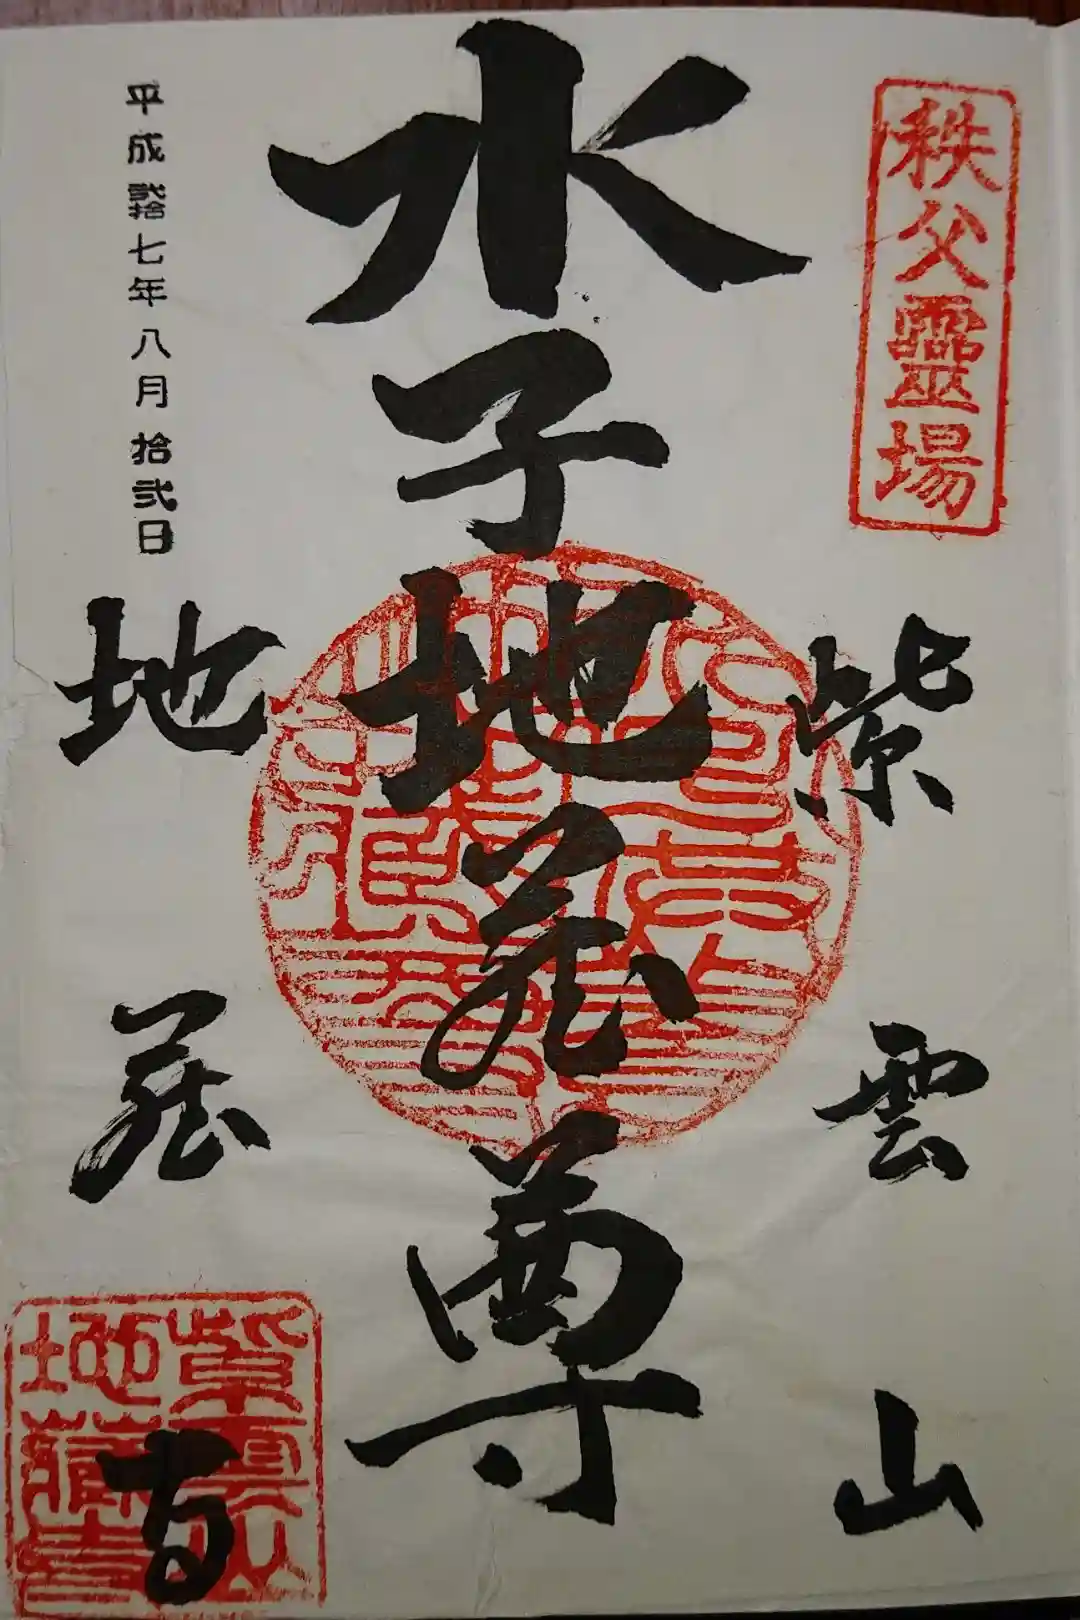 秩父靈場
紫雲山
水子地蔵尊
平成弐拾七年八月拾弐日
地蔵寺
紫雲山
地蔵寺